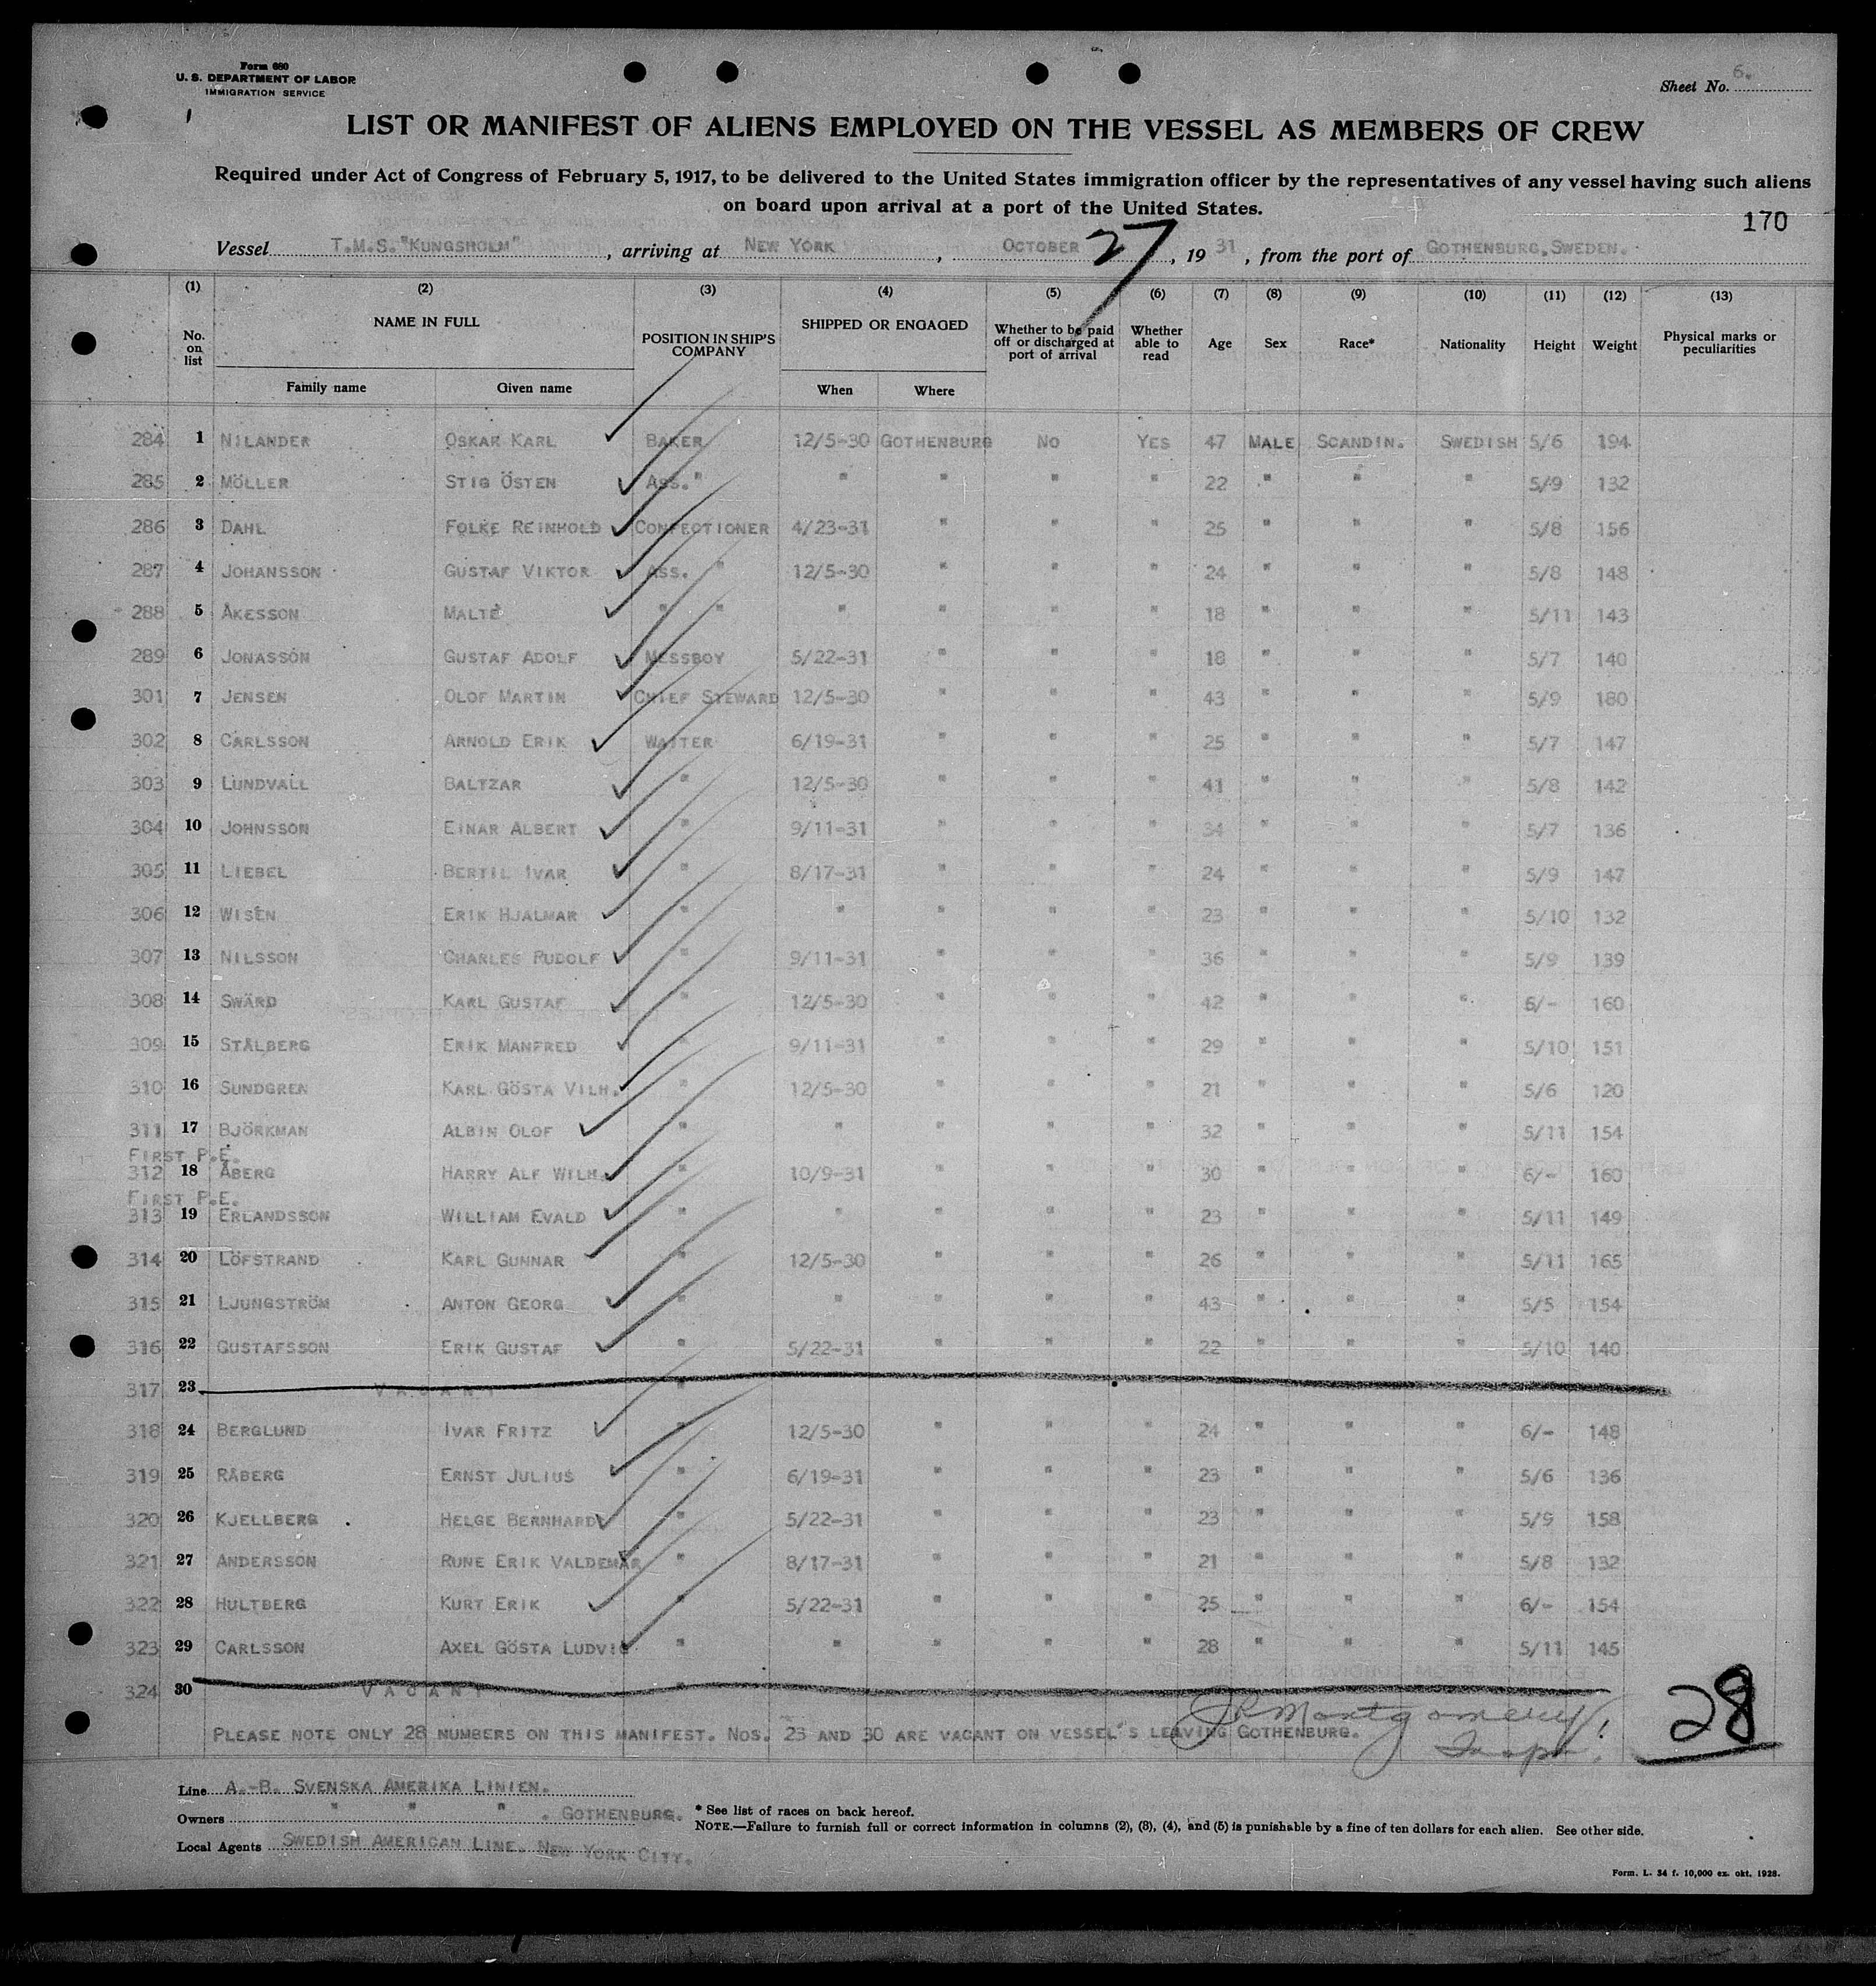 Form 680
U. S. DEPARTMENT OF LABOR
IMMIGRATION SERVICE
Sheet No. 6.
LIST OR MANIFEST OF ALIENS EMPLOYED ON THE VESSEL AS MEMBERS OF CREW
Required under Act of Congress of February 5, 1917, to be delivered to the United States immigration officer by the representatives of any vessel having such aliens
on board upon arrival at a port of the United States.
170
Vessel T.M.S. "KUNGSHOLM", arriving at NEW YORK, OCTOBER 27, 19 31, from the port of GOTHENBURG, SWEDEN.
(1) (2) (3) (4) (5) (6) (7) (8) (9) (10) (11) (12) (13)
No. on list NAME IN FULL POSITION IN SHIP'S COMPANY SHIPPED OR ENGAGED Whether to be paid off or discharged at port of arrival Whether able to read Age Sex Race* Nationality Height Weight Physical marks or peculiarities
Family name Given name When Where
284 1 NILANDER OSKAR KARL BAKER 12/5-30 GOTHENBURG NO YES 47 MALE SCANDIN. SWEDISH 5/6 194
285 2 MÖLLER STIG ÖSTEN ASS. " " " " " 22 " " " 5/9 132
286 3 DAHL FOLKE REINHOLD CONFECTIONER 4/23-31 " " " 25 " " " 5/8 156
287 4 JOHANSSON GUSTAF VIKTOR ASS. " 12/5-30 " " " 24 " " " 5/8 148
288 5 ÅKESSON MALTE " " " " " " 18 " " " 5/11 143
289 6 JONASSON GUSTAF ADOLF MESSBOY 5/22-31 " " " 18 " " " 5/7 140
301 7 JENSEN OLOF MARTIN CHIEF STEWARD 12/5-30 " " " 43 " " " 5/9 180
302 8 CARLSSON ARNOLD ERIK WAITER 6/19-31 " " " 25 " " " 5/7 147
303 9 LUNDVALL BALTZAR " 12/5-30 " " " 41 " " " 5/8 142
304 10 JOHNSSON EINAR ALBERT " 9/11-31 " " " 34 " " " 5/7 136
305 11 LIEBEL BERTIL IVAR " 8/17-31 " " " 24 " " " 5/9 147
306 12 WISÉN ERIK HJALMAR " " " " " 23 " " " 5/10 132
307 13 NILSSON CHARLES RUDOLF " 9/11-31 " " " 36 " " " 5/9 139
308 14 SWÄRD KARL GUSTAF " 12/5-30 " " " 42 " " " 6/- 160
309 15 STÅLBERG ERIK MANFRED " 9/11-31 " " " 29 " " " 5/10 151
310 16 SUNDGREN KARL GÖSTA VILH. " 12/5-30 " " " 21 " " " 5/6 120
311 17 BJÖRKMAN ALBIN OLOF " " " " " 32 " " " 5/11 154
FIRST P.E.
312 18 ÅBERG HARRY ALF WILH. " 10/9-31 " " " 30 " " " 6/- 160
FIRST P.E.
313 19 ERLANDSSON WILLIAM EVALD " " " " " 23 " " " 5/11 149
314 20 LÖFSTRAND KARL GUNNAR " 12/5-30 " " " 26 " " " 5/11 165
315 21 LJUNGSTRÖM ANTON GEORG " " " " " 43 " " " 5/5 154
316 22 GUSTAFSSON ERIK GUSTAF " 5/22-31 " " " 22 " " " 5/10 140
317 23 VACANT "
318 24 BERGLUND IVAR FRITZ " 12/5-30 " " " 24 " " " 6/- 148
319 25 RÅBERG ERNST JULIUS " 6/19-31 " " " 23 " " " 5/6 136
320 26 KJELLBERG HELGE BERNHARD " 5/22-31 " " " 23 " " " 5/9 158
321 27 ANDERSSON RUNE ERIK VALDEMAR " 8/17-31 " " " 21 " " " 5/8 132
322 28 HULTBERG KURT ERIK " 5/22-31 " " " 25 " " " 6/- 154
323 29 CARLSSON AXEL GÖSTA LUDVIG " " " " " 28 " " " 5/11 145
324 30 VACANT "
PLEASE NOTE ONLY 28 NUMBERS ON THIS MANIFEST. NOS. 23 AND 30 ARE VACANT ON VESSEL'S LEAVING GOTHENBURG.
Montgomery
Inspr.
28
Line A.-B. SVENSKA AMERIKA LINIEN.
Owners " " " . GOTHENBURG.
Local Agents SWEDISH AMERICAN LINE. NEW YORK CITY.
* See list of races on back hereof.
NOTE.—Failure to furnish full or correct information in columns (2), (3), (4), and (5) is punishable by a fine of ten dollars for each alien. See other side.
Form. L. 34 f. 10,000 ex. okt. 1928.